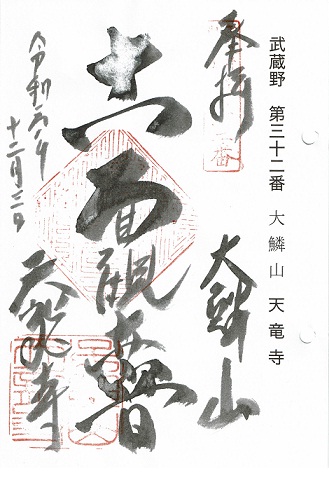 武蔵野 第三十二番 大鱗山 天竜寺
奉拝
大鱗山
十一面観世音
天龍寺
令和六年
十二月三日